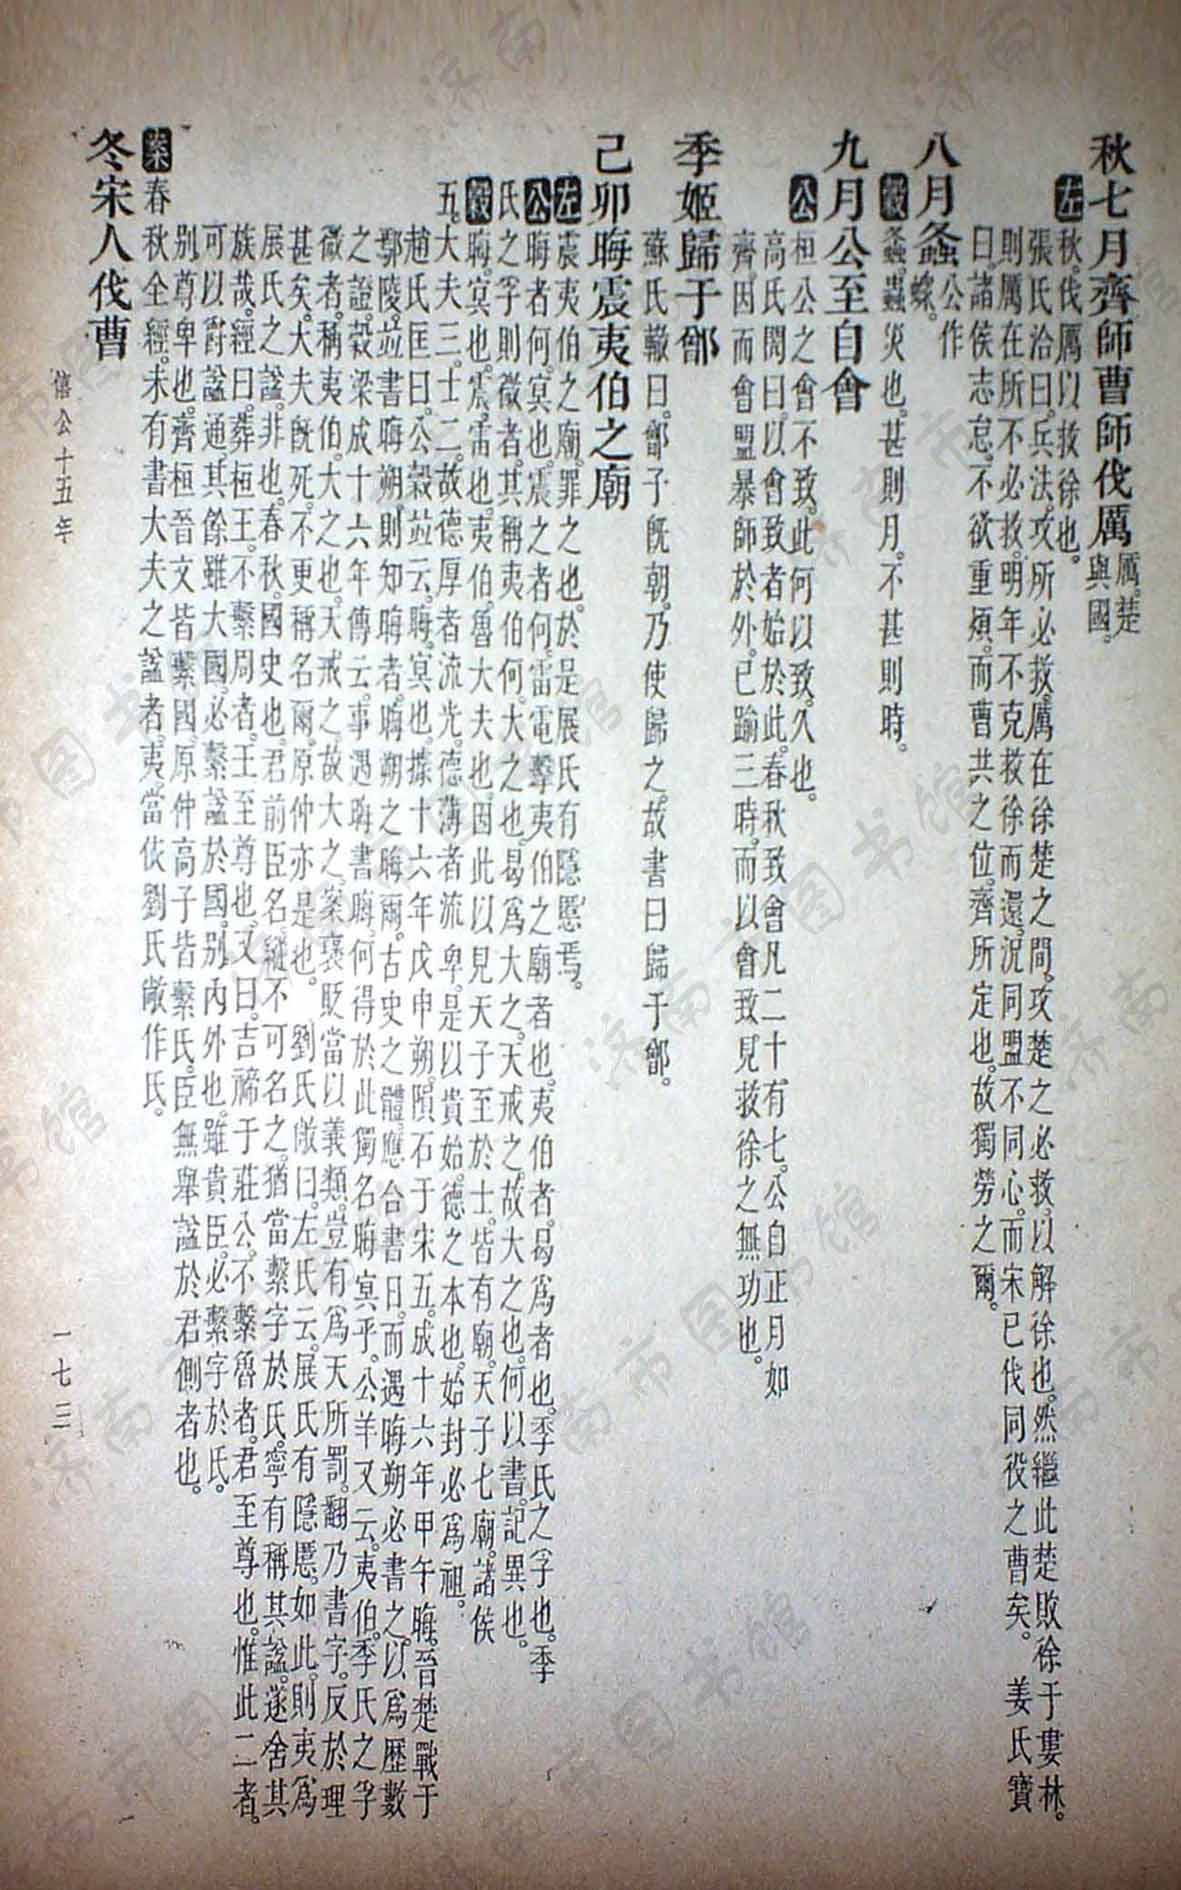 秋七月齊師曹師伐厲厲。楚與國。
左秋。伐厲以救徐也。
張氏洽曰。兵法。攻所必救。厲在徐楚之間。攻楚之必救。以解徐也。然繼此楚敗徐于婁林。
則厲在所不必救。明年不克救徐而還。況同盟不同心。而宋已伐同役之曹矣。　姜氏寶
曰。諸侯志怠。不欲重煩。而曹共之位。齊所定也。故獨勞之爾。
八月螽公作螺。
穀螽。蟲災也。甚則月。不甚則時。
九月公至自會
公桓公之會不致。此何以致。久也。
高氏閌曰。以會致者始於此。春秋致會凡二十有七。公自正月如
齊。因而會盟暴師於外。已踰三時。而以會致。見救徐之無功也。
季姬歸于鄫
蘇氏轍曰。鄫子既朝。乃使歸之。故書曰歸于鄫。
己卯晦震夷伯之廟
左震夷伯之廟。罪之也。於是展氏有隱慝焉。
公晦者何。冥也。震之者何。雷電擊夷伯之廟者也。夷伯者曷爲者也。季氏之孚也。季
氏之孚則微者。其稱夷伯何。大之也。曷爲大之。天戒之。故大之也。何以書。記異也。
穀晦。冥也。震。雷也。夷伯。魯大夫也。因此以見天子至於士。皆有廟。天子七廟。諸侯
五。大夫三。士二。故德厚者流光。德薄者流卑。是以貴始。德之本也。始封必爲祖。
趙氏匡曰。公穀竝云。晦。冥也。據十六年戊申朔。隕石于宋五。成十六年甲午晦。晉楚戰于
鄢陵。竝書晦朔。則知晦者。晦朔之晦爾。古史之體。應合書日。而遇晦朔必書之。以爲歷數
之證。穀梁成十六年傳云。事遇晦書晦。何得於此獨名晦冥乎。公羊又云。夷伯。季氏之孚
微者。稱夷伯。大之也。天戒之。故大之。案褒貶當以義類。豈有爲天所罰。翻乃書字。反於理
甚矣。大夫既死。不更稱名爾。原仲亦是也。　劉氏敞曰。左氏云。展氏有隱慝。如此。則夷爲
展氏之謚。非也。春秋。國史也。君前臣名。縱不可名之。猶當繫字於氏。寧有稱其謚。遂舍其
族哉。經曰。葬桓王。不繫周者。王至尊也。又曰。吉禘于莊公。不繫魯者。君至尊也。惟此二者。
可以爵謚通。其餘雖大國。必繫謚於國。別內外也。雖貴臣。必繫字於氏。
別尊卑也。齊桓晉文皆繫國。原仲高子皆繫氏。臣無舉謚於君側者也。
案春秋全經。未有書大夫之謚者。夷。當依劉氏敞作氏。
冬宋人伐曹
僖公十五年
一七三